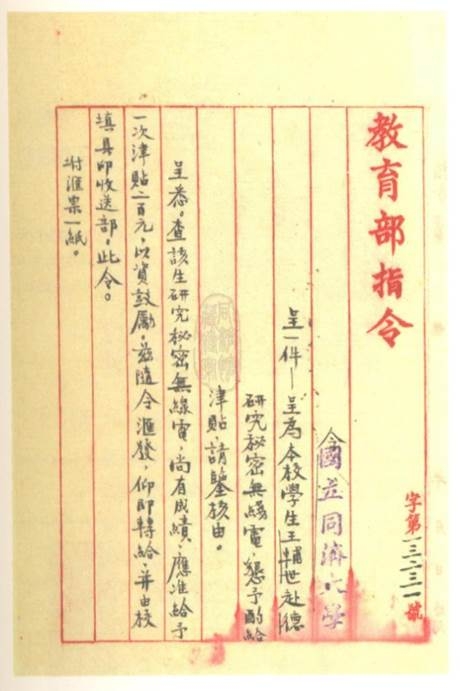 教育部指令
字第一三二三一號
令國立同濟大學
呈一件—呈為本校學生王輔世赴德
研究秘密無綫電，懇予酌給
津貼，請鑒核由。
呈悉。查該生研究秘密無線電，尚有成績，應准給予
一次津貼二百元，以資鼓勵，茲隨令滙發，仰即轉給，并由校
填具印收送部。此令。
附滙票一紙。